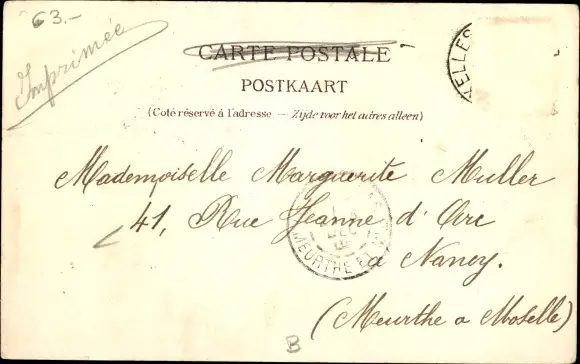 63.-
Imprimée
CARTE POSTALE
POSTKAART
(Coté réservé à l'adresse — Zijde voor het adres alleen)
XELLES
Mademoiselle Marguerite Muller
41, Rue Jeanne d'Arc
à Nancy.
(Meurthe & Moselle)
MEURTHE ET M
DEC
B